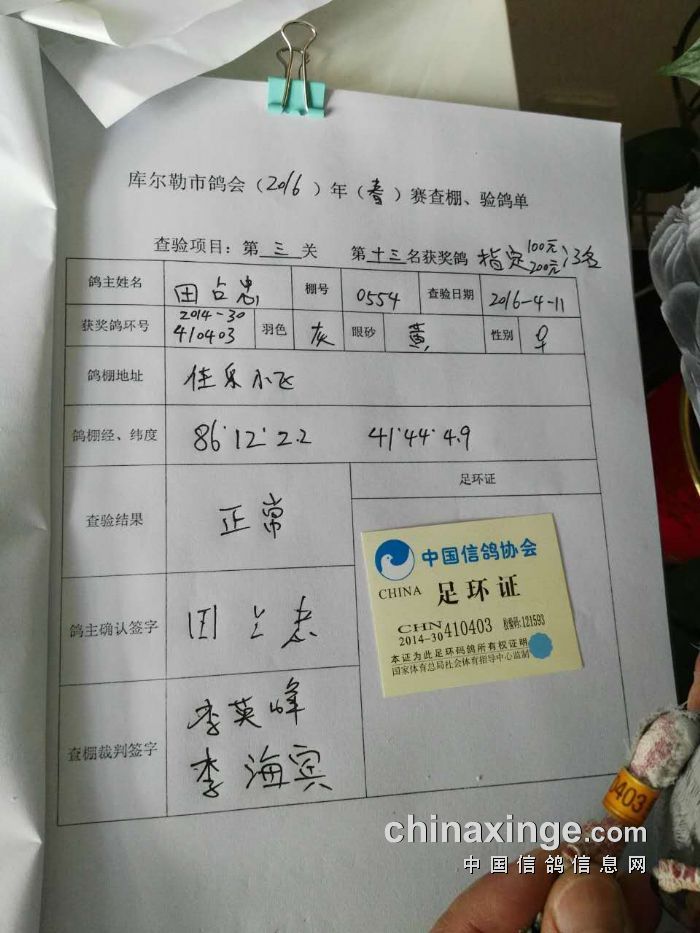 库尔勒市鸽会（2016）年（春）赛查棚、验鸽单
查验项目：第 三 关 第 十三 名获奖鸽 指定 100元 200元
鸽主姓名 田占忠 棚号 0554 查验日期 2016-4-11
获奖鸽环号 2014-30 410403 羽色 灰 眼砂 黄 性别 ♀
鸽棚地址 佳乐小飞
鸽棚经、纬度 86°12′2.2 41°44′4.9
查验结果 正常
足环证
鸽主确认签字 田占忠
查棚裁判签字 李英峰
李海宾
中国信鸽协会
CHINA 足环证
CHN
2014-30 410403 校验码:121593
本证为此足环码鸽所有权证明
国家体育总局社会体育指导中心监制
0403
chinaxinge.com
中国信鸽信息网